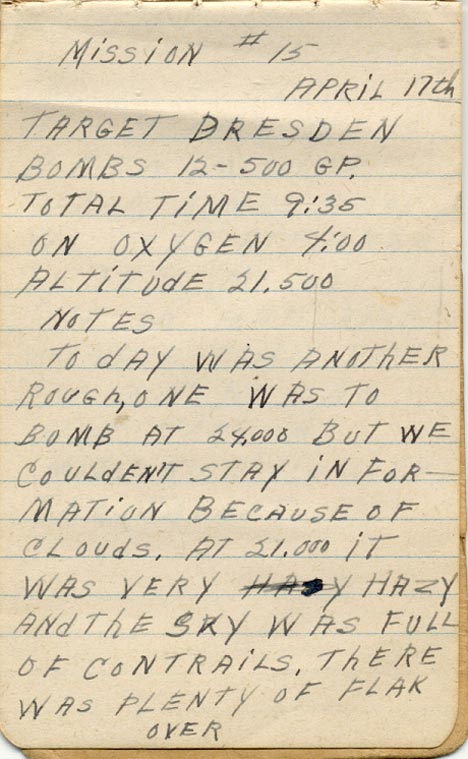 MISSION # 15
APRIL 17th
TARGET DRESDEN
BOMBS 12-500 GP.
TOTAL TIME 9:35
ON OXYGEN 4:00
ALTITUDE 21,500
NOTES
TODAY WAS ANOTHER
ROUGH, ONE WAS TO
BOMB AT 24,000 BUT WE
COULDEN'T STAY IN FOR-
MATION BECAUSE OF
CLOUDS. AT 21,000 IT
WAS VERY HAZY HAZY
AND THE SKY WAS FULL
OF CONTRAILS. THERE
WAS PLENTY OF FLAK
OVER